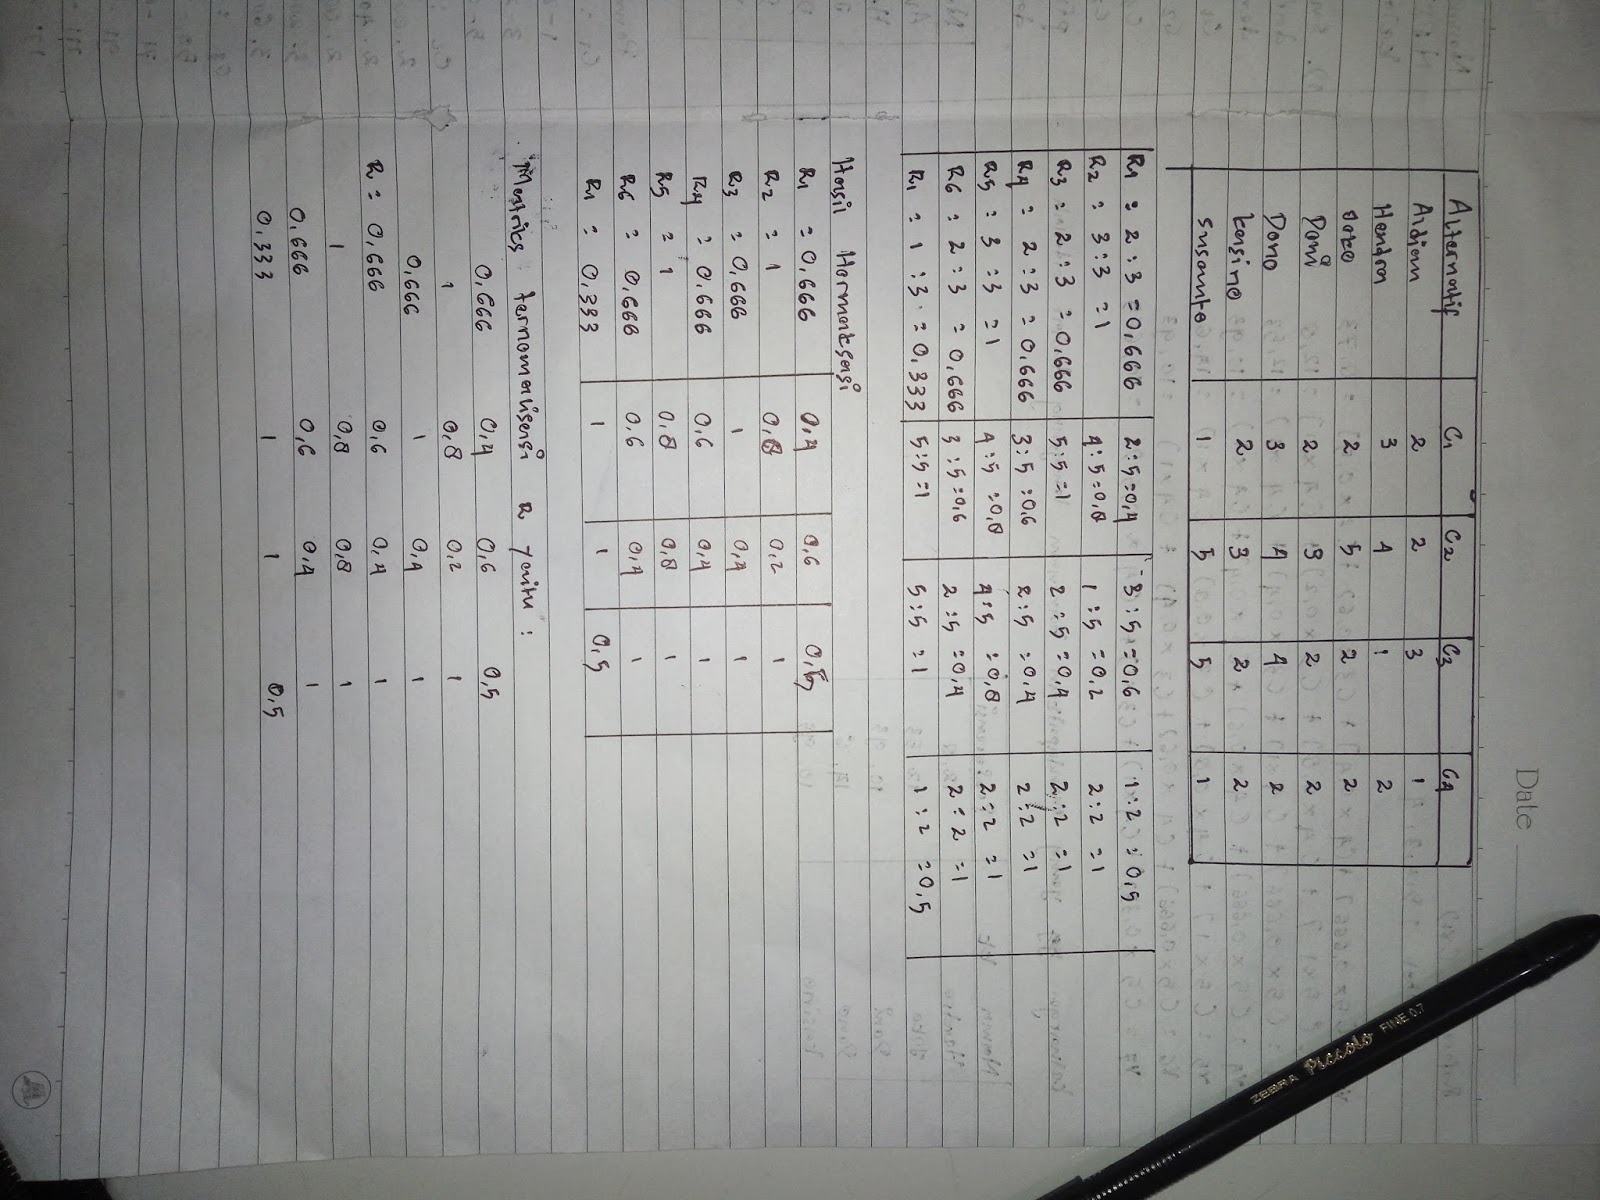 Date
Alternatif C1 C2 C3 C4
Ardian 2 2 3 1
Hendra 3 4 1 2
Joko 2 5 2 2
Doni 2 3 2 2
Dono 3 4 4 2
kasino 2 3 2 2
susanto 1 5 5 1
R1 = 2 : 3 = 0,666 2 : 5 = 0,4 3 : 5 = 0,6 1 : 2 = 0,5
R2 = 3 : 3 = 1 4 : 5 = 0,8 1 : 5 = 0,2 2 : 2 = 1
R3 = 2 : 3 = 0,666 5 : 5 = 1 2 : 5 = 0,4 2 : 2 = 1
R4 = 2 : 3 = 0,666 3 : 5 = 0,6 2 : 5 = 0,4 2 : 2 = 1
R5 = 3 : 3 = 1 4 : 5 = 0,8 4 : 5 = 0,8 2 : 2 = 1
R6 = 2 : 3 = 0,666 3 : 5 = 0,6 2 : 5 = 0,4 2 : 2 = 1
R1 = 1 : 3 = 0,333 5 : 5 = 1 5 : 5 = 1 1 : 2 = 0,5
Hasil
R1 = 0,666 0,4 0,6 0,5
R2 = 1 0,8 0,2 1
R3 = 0,666 1 0,4 1
R4 = 0,666 0,6 0,4 1
R5 = 1 0,8 0,8 1
R6 = 0,666 0,6 0,4 1
R1 = 0,333 1 1 0,5
Matriks ternomalisasi R yaitu :
0,666 0,4 0,6 0,5
1 0,8 0,2 1
0,666 1 0,4 1
R = 0,666 0,6 0,4 1
1 0,8 0,8 1
0,666 0,6 0,4 1
0,333 1 1 0,5
ZEBRA Piccolo FINE 0.7